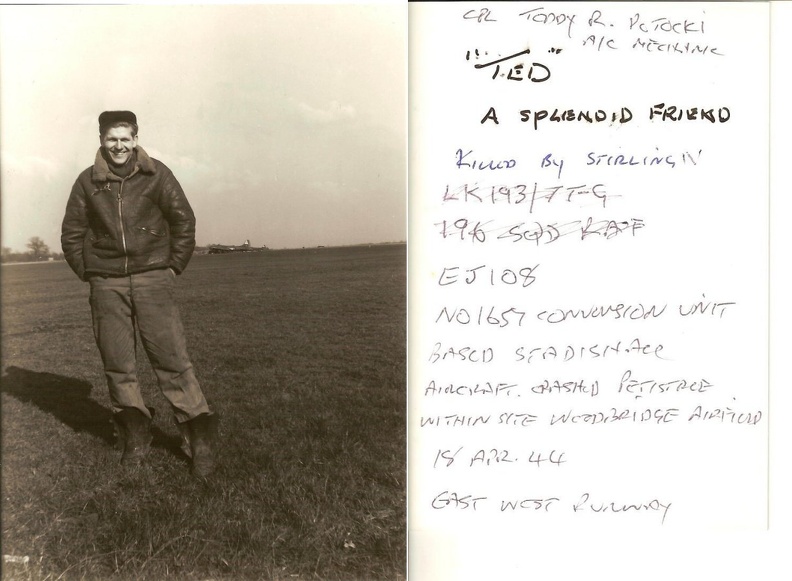 CPL TODDY R. POTOCKI
A/C MECHANIC
"TED"
A SPLENDID FRIEND
KILLED BY STIRLING IV
LK193/7T-G
196 SQD RAF
EJ108
NO1657 CONVERSION UNIT
BASED STADISHALL
AIRCRAFT. CRASHED PETISTREE
WITHIN SITE WOODBRIDGE AIRFIELD
18 APR. 44
EAST WEST RUNWAY